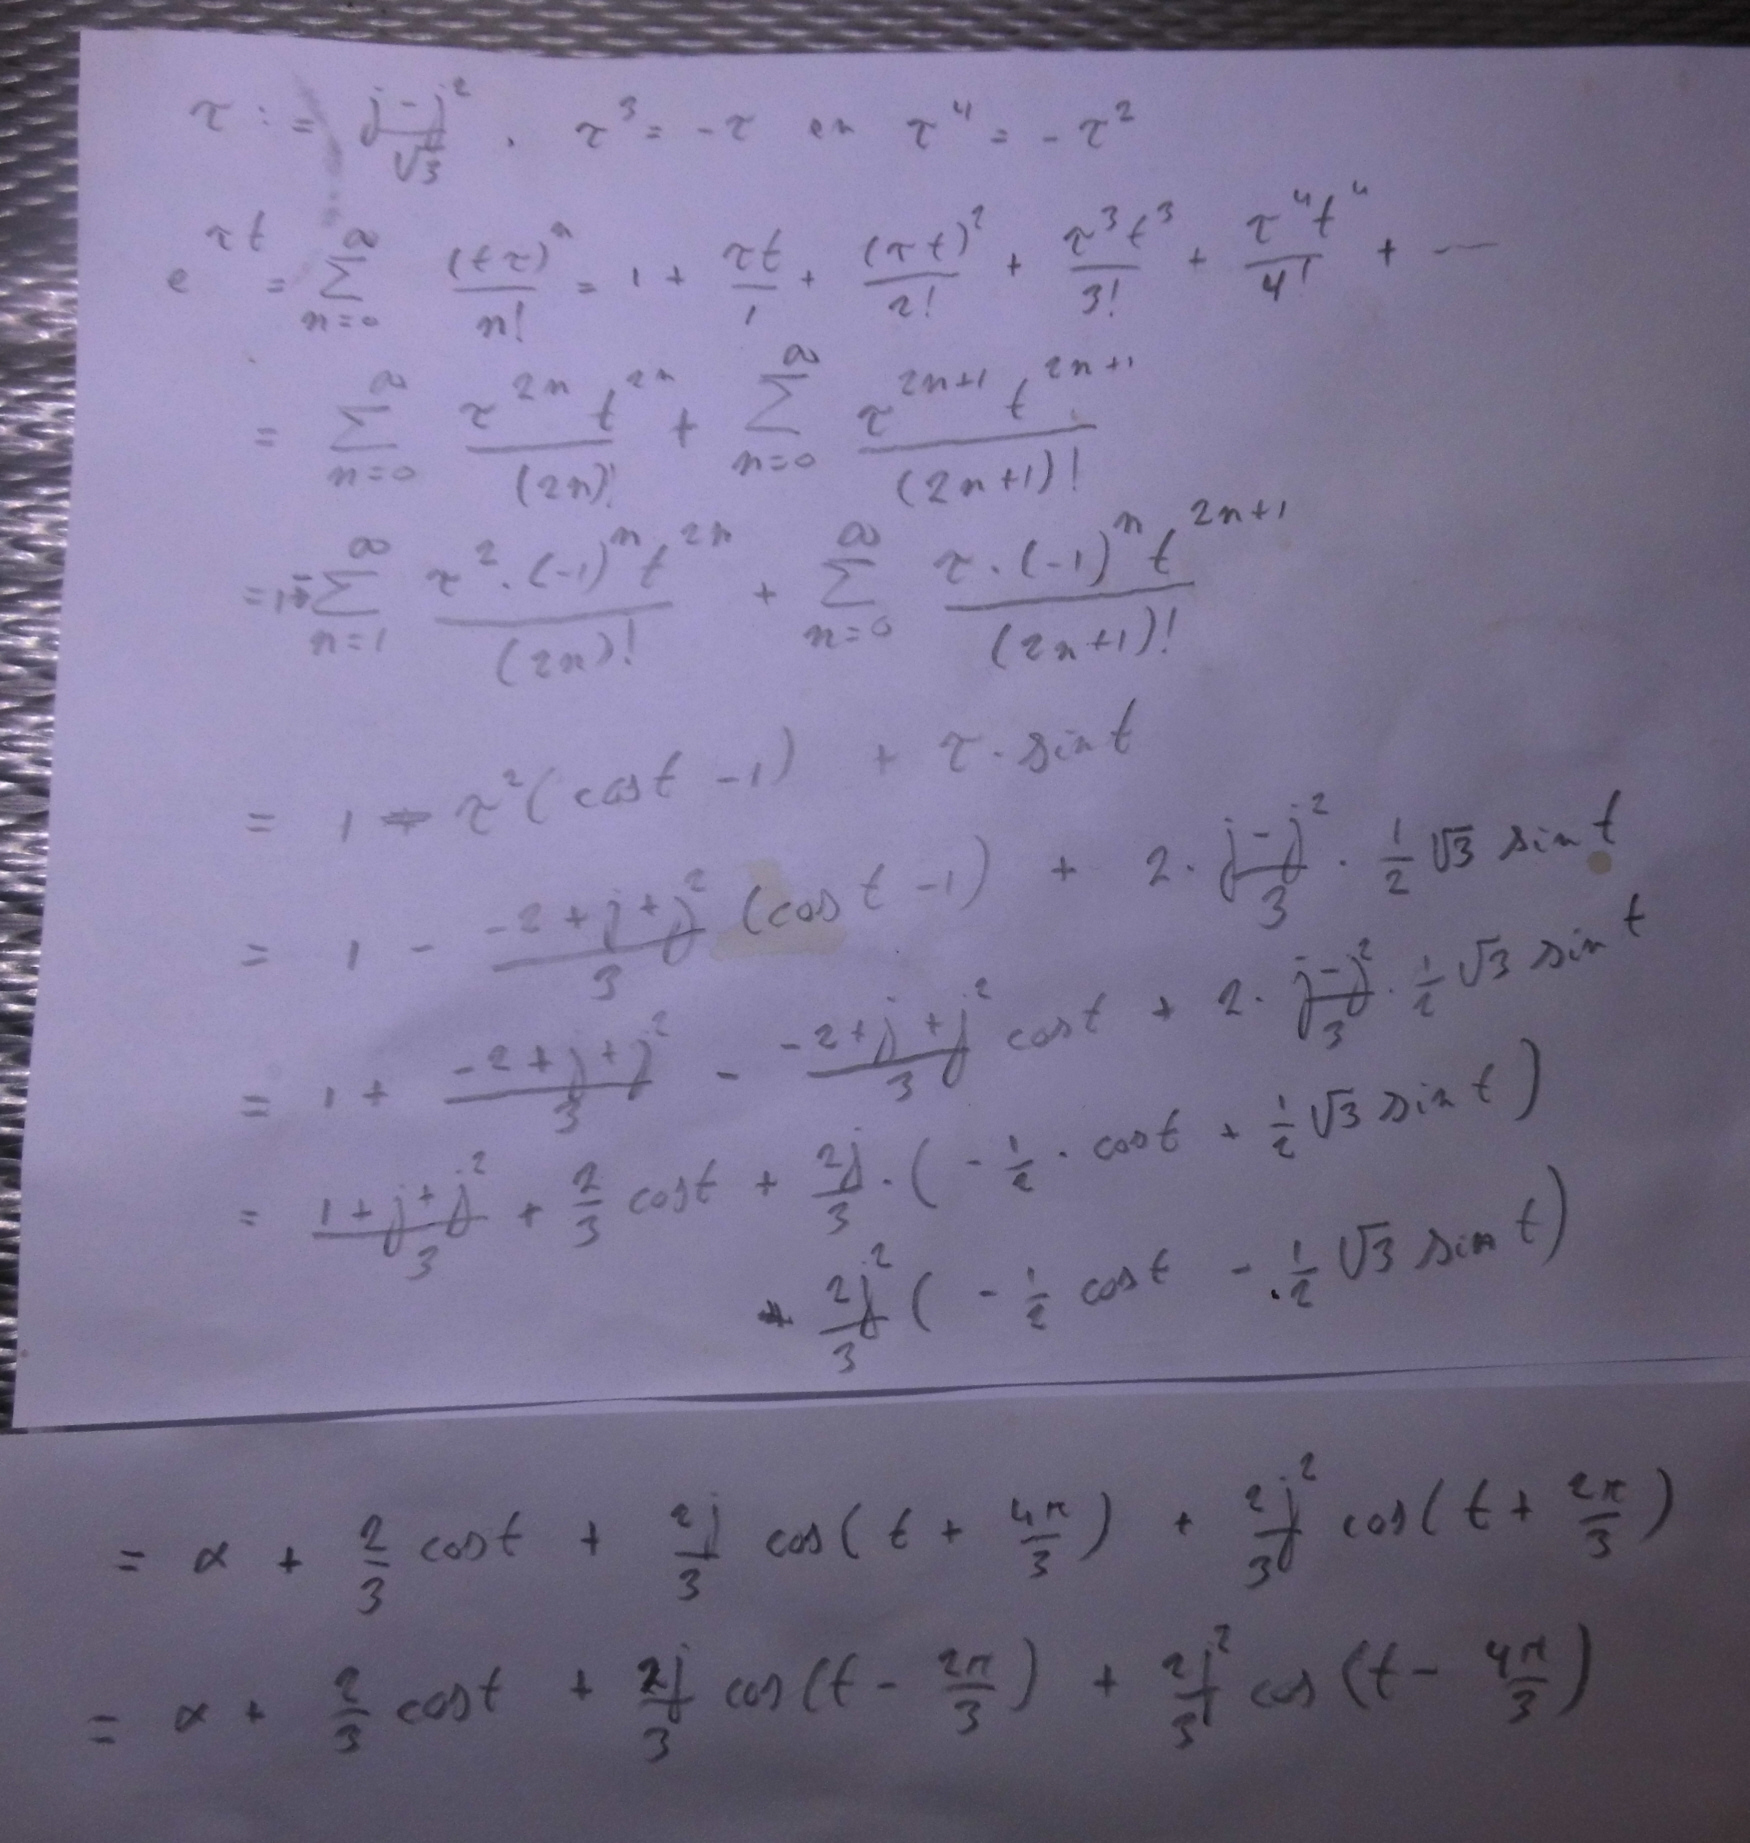 τ := (j - j²)/√3 . τ³ = -τ en τ⁴ = -τ²
e^(τt) = ∑_{n=0}^{∞} (tτ)ⁿ/n! = 1 + τt/1 + (τt)²/2! + τ³t³/3! + τ⁴t⁴/4! + ---
= ∑_{n=0}^{∞} τ^(2n) t^(2n)/(2n)! + ∑_{n=0}^{∞} τ^(2n+1) t^(2n+1)/(2n+1)!
= 1 - ∑_{n=1}^{∞} τ²·(-1)ⁿ t^(2n)/(2n)! + ∑_{n=0}^{∞} τ·(-1)ⁿ t^(2n+1)/(2n+1)!
= 1 - τ²(cos t - 1) + τ·sin t
= 1 - (-2 + j + j²)/3 (cos t - 1) + 2·(j - j²)/3 · 1/2 √3 sin t
= 1 + (-2 + j + j²)/3 - (-2 + j + j²)/3 cos t + 2·(j - j²)/3 · 1/2 √3 sin t
= (1 + j + j²)/3 + 2/3 cos t + 2j/3 · (-1/2 · cos t + 1/2 √3 sin t)
+ 2j²/3 (-1/2 cos t - 1/2 √3 sin t)
= α + 2/3 cos t + 2j/3 cos(t + 4π/3) + 2j²/3 cos(t + 2π/3)
= α + 2/3 cos t + 2j/3 cos(t - 2π/3) + 2j²/3 cos(t - 4π/3)